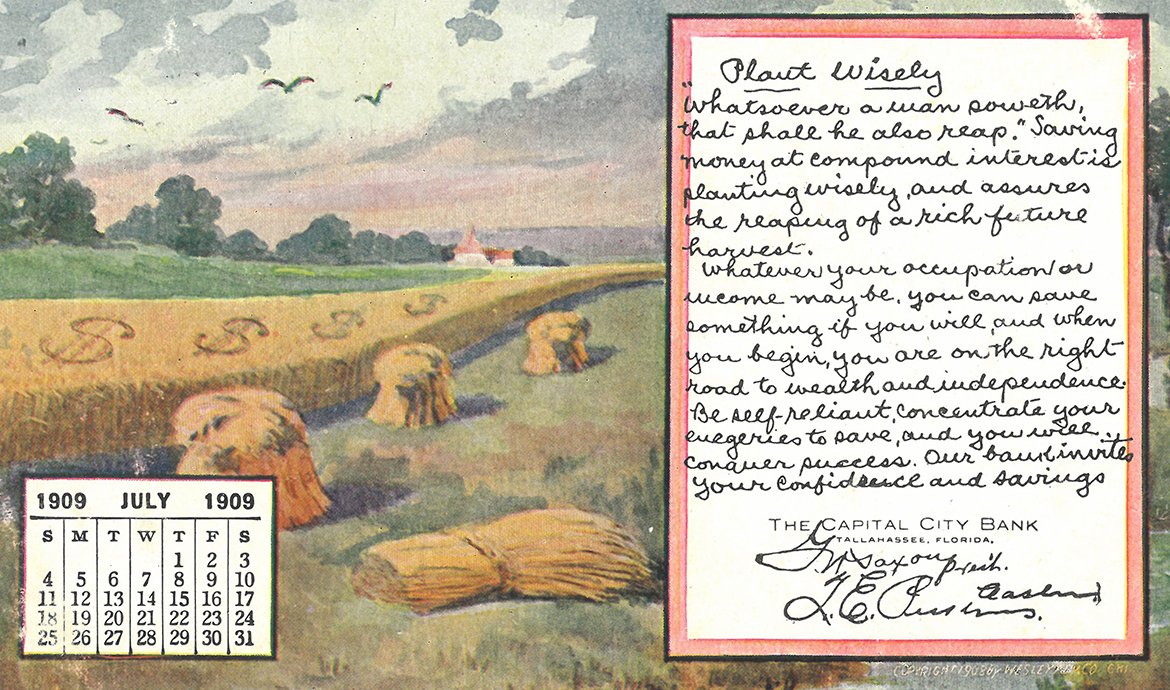 Plant Wisely
"Whatsoever a man soweth,
that shall he also reap." Saving
money at compound interest is
planting wisely, and assures
the reaping of a rich future
harvest.
Whatever your occupation or
income may be, you can save
something if you will, and when
you begin, you are on the right
road to wealth and independence.
Be self-reliant, concentrate your
enegeries to save, and you will
conquer success. Our bank invites
your confidence and savings
THE CAPITAL CITY BANK
TALLAHASSEE, FLORIDA.
Saxon Pres't.
T. E.
1909 JULY 1909
S M T W T F S
1 2 3
4 5 6 7 8 9 10
11 12 13 14 15 16 17
18 19 20 21 22 23 24
25 26 27 28 29 30 31
$ $ $ $
COPYRIGHT 1908 by WESLEY CO. CHI